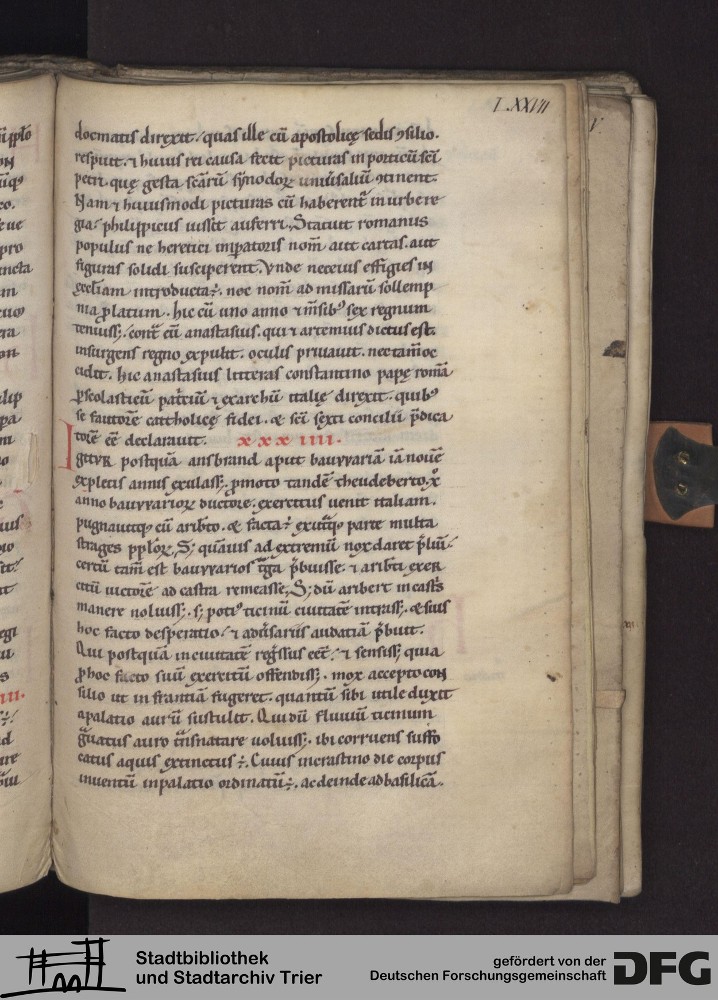 LXXVII
docmatis direxit. quas ille cū apostolicę sedis ꝯsilio.
respuit. ⁊ huius rei causa fecit picturas in porticu sc̄i
petri. quę gesta sc̄arū synodoꝝ uniūsaliū ꝯtinent.
Nam ⁊ huiusmodi picturas cū haberent᷑ in urbe re
gia. philippicus iussit auferri. Statuit romanus
populus ne heretici imp̄atoris nom̄ aut cartas. aut
figuras solidi susciperent. Vnde nec eius effigies in
ęccl̄iam introducta ÷. nec nom̄ ad missarū sollemp
nia ꝓlatum. hic cū uno anno ⁊ m̄sibꝰ sex regnum
tenuiss;. cont̄ eū anastasius. qui ⁊ artemius dictus est.
insurgens regno expulit. oculis priuauit. nec tam̄ oc
cidit. hic anastasius litteras constantino papę romā
ꝑ scolasticū patriū ⁊ exarchū italię direxit. quibꝰ
se fautorē catholicę fidei. & sc̄i sexti concilii p̄dica
torē eē declarauit. xxxiiii.
Igitur postquā ansbrand aput bauuuariā iā nouē
expletis annis exulass;. ꝓmoto tandē theudeberto. x͛
anno bauuuarioꝝ ductore. exercitus uenit italiam.
pugnauitqꝫ cū arib̄to. & facta ÷ ex ut̄qꝫ parte multa
strages pp̄loꝝ. S; quāuis ad extremū nox daret p̄liū.
certū tam̄ est bauuuarios t̄ga p̄buisse. ⁊ arib̄ti exer
citū uictorē ad castra remeasse. S; dū aribert in cast̄s
manere noluiss;. s; potiꝰ ticinū ciuitatē intrass;. & suis
hoc facto desperatio. ⁊ adūsariis audatiā p̄buit.
Qui postquā in ciuitatē reḡssus eēt. ⁊ sensiss; quia
ꝓ hoc facto suū exercitū offendiss;. mox accepto con
silio ut in frantiā fugeret. quantū sibi utile duxit
a palatio aurū sustulit. Qui dū fluuiū ticinum
ḡuatus auro t̄nsnatare uoluiss;. ibi corruens suffo
catus aquis extinctus ÷. Cuius in crastino die corpus
inuentū in palatio ordinatū ÷. ac deinde ad basilicā.
Stadtbibliothek
und Stadtarchiv Trier
gefördert von der
Deutschen Forschungsgemeinschaft
DFG